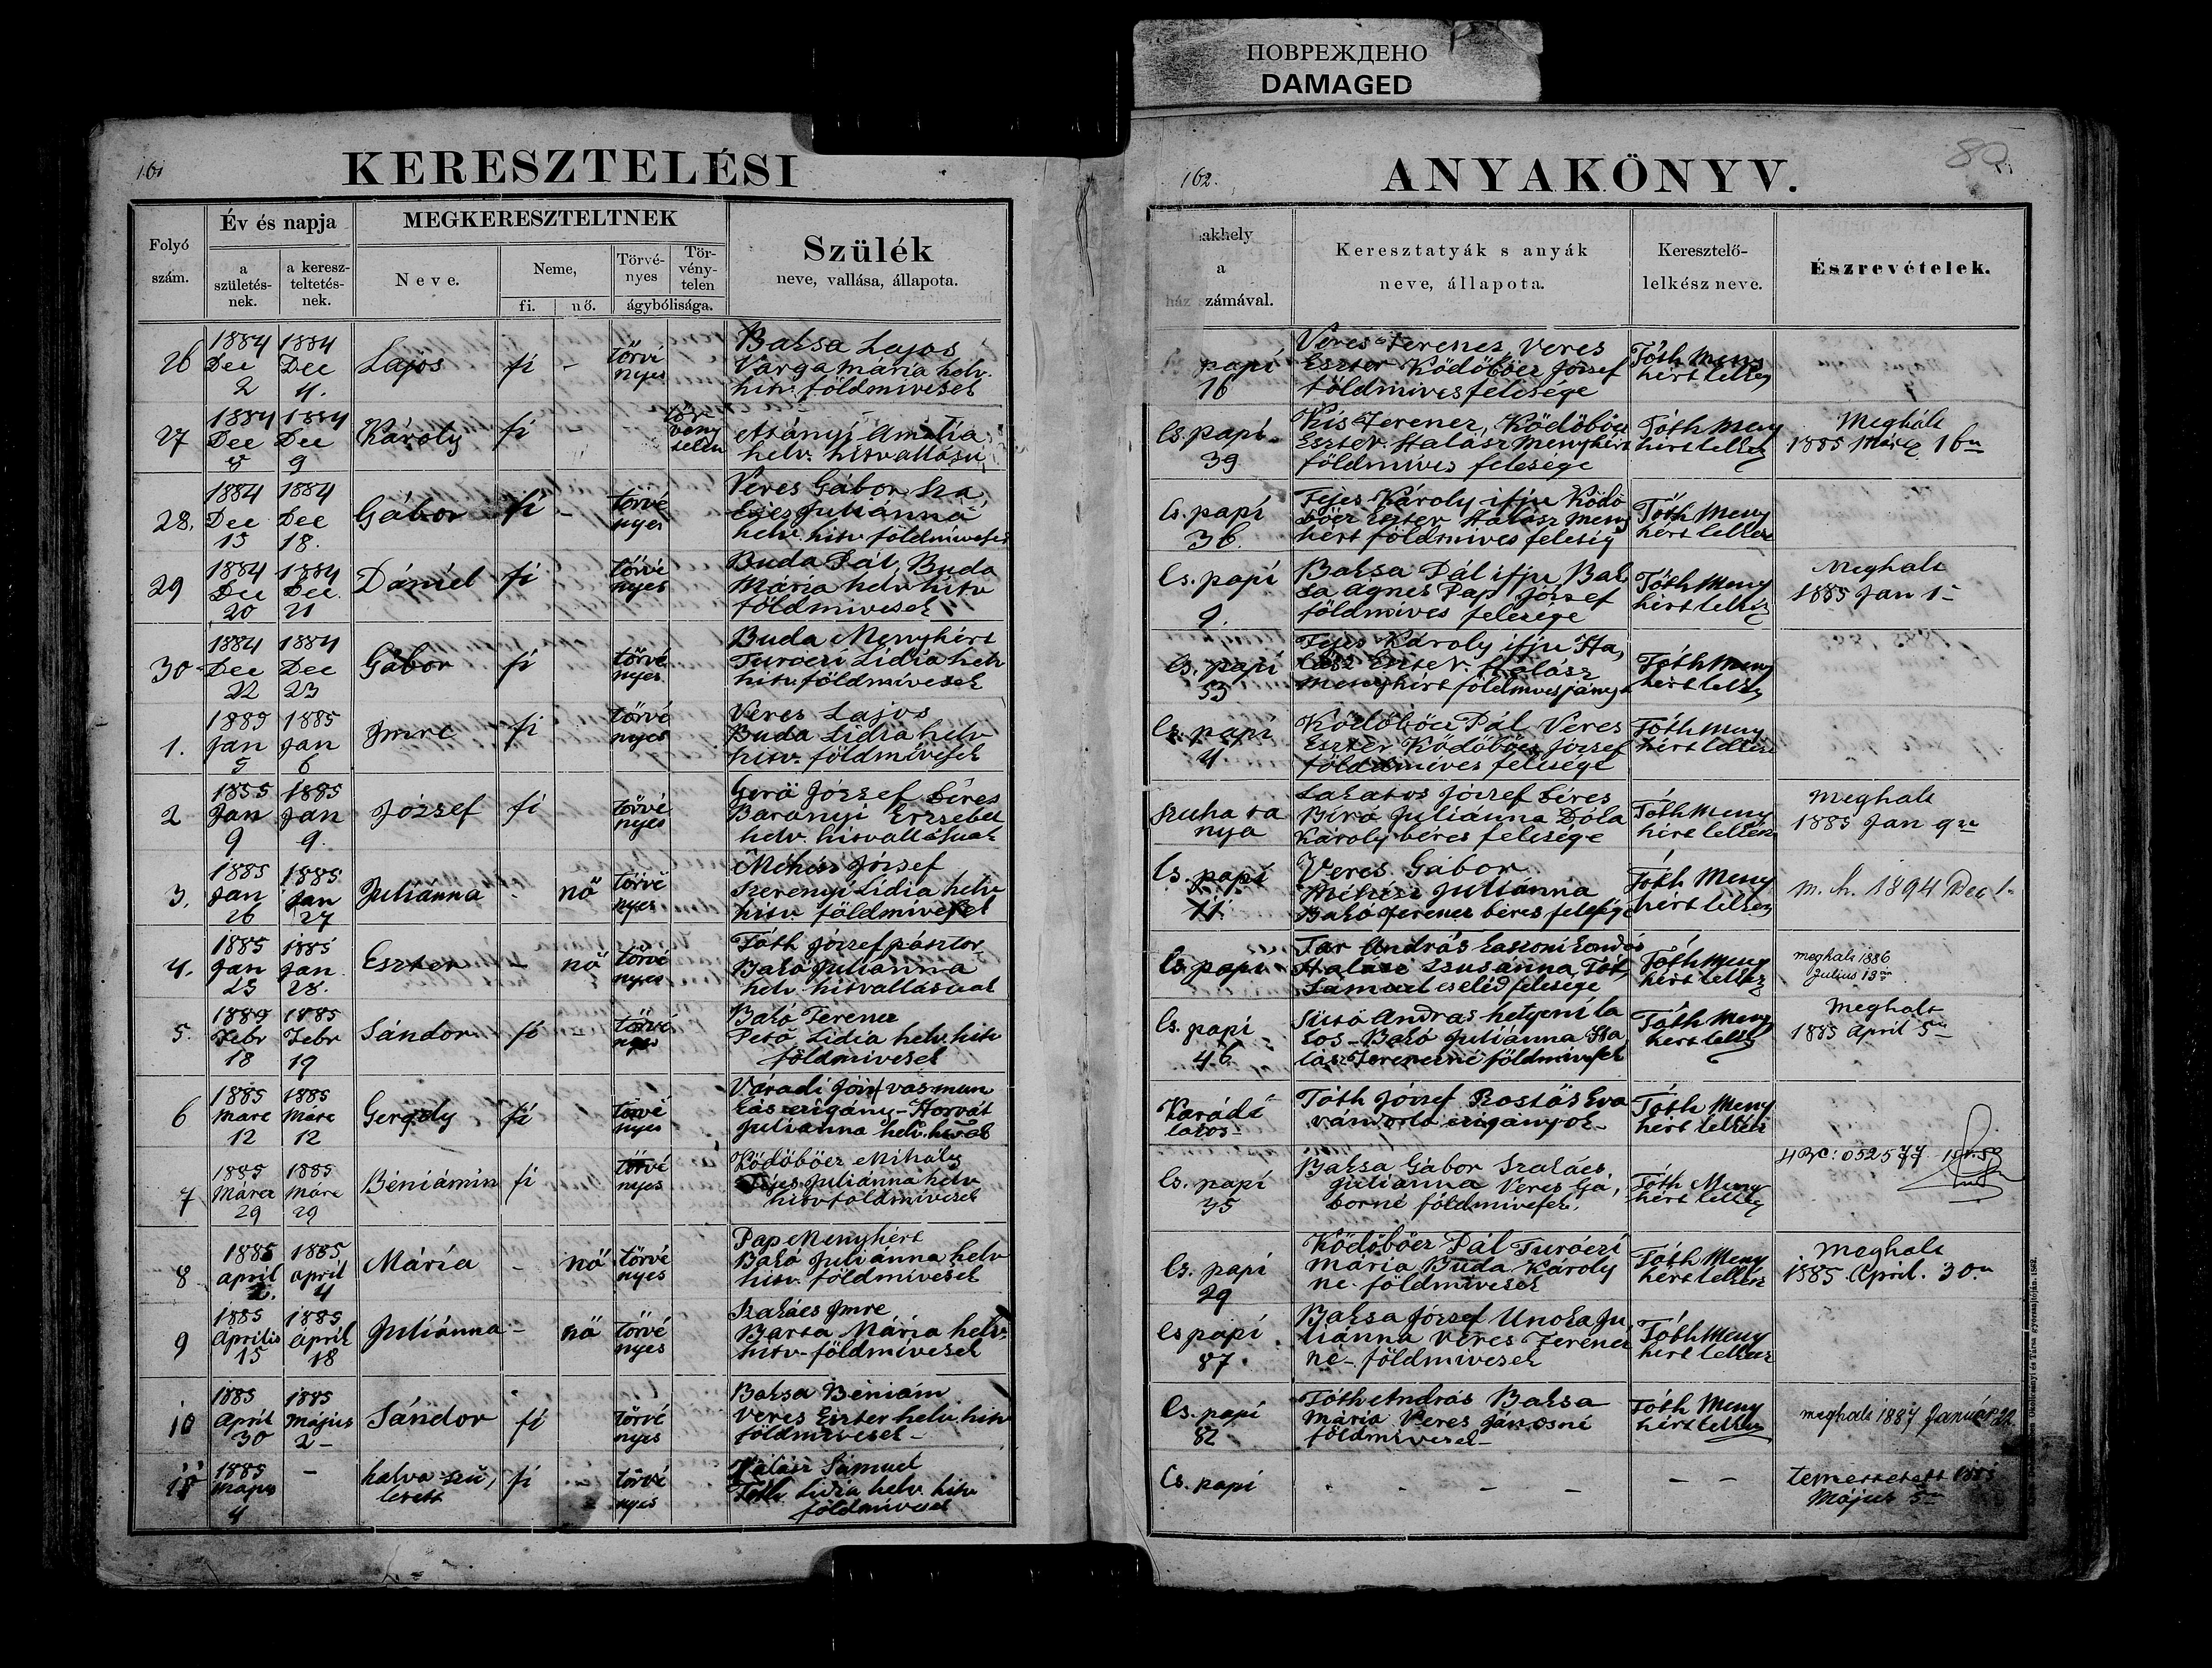 ПОВРЕЖДЕНО
DAMAGED
161
KERESZTELÉSI
Folyó
szám.
Év és napja
a
születés-
nek.
a keresz-
teltetés-
nek.
MEGKERESZTELTNEK
Neve.
Neme,
fi.
nő.
Törvé-
nyes
Tör-
vény-
telen
ágybólisága.
Szülék
neve, vallása, állapota.
162.
ANYAKÖNYV.
akhely
a
ház számával.
Keresztatyák s anyák
neve, állapota.
Keresztelő-
lelkész neve.
Észrevételek.
26
1884
Dec
2
1884
Dec
4.
Lajos
fi
-
törvé
nyes
Baksa Lajos
Varga Mária helv.
hitv. földmivesek
papi
16
Veres Ferencz Veres
Eszter Ködöböcz József
földmives felesége
Tóth Meny
hért lelkész
27
1884
Dec
8
1884
Dec
9
Károly
fi
törvény
telen
Amália
helv. hitvallásu
Cs. papi
39
Kis Ferencz, Ködöböcz
Eszter Halász Menyhért
földmives felesége
Tóth Meny
hért lelkész
Meghalt
1885 Márcz 16án
28.
1884
Dec
15
1884
Dec
18.
Gábor
fi
-
törvé
nyes
Veres Gábor Sza
Juliánna
helv. hitv földmivesek
Cs. papi
36.
Fejes Károly ifju Ködö
böcz Eszter Halász Meny
hért földmives feleség
Tóth Meny
hért lelkész
29
1884
Dec
20
1884
Dec.
21
Dániel
fi
törvé
nyes
Buda Pál, Buda
Mária helv hitv
földmivesek
Cs. papi
9.
Baksa Pál ifju, Bak
sa Ágnes Pap József
földmives felesége
Tóth Meny
hért lelkész
Meghalt
1885 Jan 1-
30
1884
Dec
22
1884
Dec
23
Gábor
fi
törvé
nyes
Buda Menyhért
Turóczi Lidia helv
hitv. földmivesek
Cs. papi
53
Fejes Károly ifju Ha,
lász Eszter Halász
Menyhért földmives
Tóth Meny
hért lelkész
1.
1885
Jan
5
1885
Jan
6
Imre
fi
törvé
nyes
Veres Lajos
Buda Lidia helv
hitv. földmivesek
Cs. papi
4
Ködöböcz Pál Veres
Eszter Ködöböcz József
földmives felesége
Tóth Meny
hért lelkész
2
1885
Jan
9
1885
Jan
9.
József
fi
törvé
nyes
Gerö József béres
Baranyi Erzsébet
helv. hitvallásuak
szuha ta
nya
Lakatos József béres
Biró Juliánna Dóla
Károly béres felesége
Tóth Meny
hért lelkész
Meghalt
1885 Jan 9én
3.
1885
Jan
26
1885
Jan
27
Juliánna
-
nő
törvé
nyes
Méhész József
Szerenyi Lidia helv
hitv földmivesek
Cs. papi
11
Veres Gábor
Méhész Juliánna
Bakó Ferencz béres felesége
Tóth Meny
hért lelkész
m. h. 1894 Dec 1.
4.
1885
Jan
25
1885
Jan
28.
Eszter
-
nő
törvé
nyes
Tóth József pásztor
Bakó Juliánna
helv hitvallásuak
Cs papi
Tar András
Halász Zsusánna Tóth
Sámuel cseléd felesége
Tóth Meny
hért lelkész
meghalt 1886
Julius 13án
5.
1885
Febr
18
1885
Febr
19
Sándor
fi
-
törvé
nyes
Bakó Ferencz
Pető Lidia helv. hitv
földmivesek
Cs. papi
46
Sütő András hetyeni la
kos - Bakó Juliánna Ha
lász Ferenczné földmivesek
Tóth Meny
hért lelk
Meghalt
1885 April 5én
6
1885
Marc
12
1885
Márc
12
Gergely
fi
törvé
nyes
Váradi József vasmun
kás czigány - Horvát
Juliánna helv.
Karádi
lakos
Tóth József Rostás Éva
vándorló czigányok -
Tóth Meny
hért lelkész
7
1885
Marcz
29
1885
Márc
29
Béniámin
fi
törvé
nyes
Ködöböcz Mihály
Fejes Juliánna helv
hitv földmivesek
Cs. papi
35
Baksa Gábor Szakács
Juliánna Veres Gá,
borné földmivesek.
Tóth Meny
hért lelkész
052577
8
1885
april
2.
1885
april
4
Mária
-
nő
törvé
nyes
Pap Menyhért
Bakó Juliánna helv
hitv. földmivesek
Cs. papi
29
Ködöböcz Pál Turóczi
Mária Buda Károly
né földmivesek
Tóth Meny
hért lelkész
Meghalt
1885 April. 30án
9
1885
Április
15
1885
April
18
Juliánna
-
nő
törvé
nyes
Szakács Imre
Barta Mária helv.
hitv - földmivesek
Cs papi
87
Baksa József Unoka Ju
liánna Veres Ferencz
né - földmivesek
Tóth Meny
hért lelkész
10
1885
April
30
1885
Május
2-
Sándor
fi
törvé
nyes
Baksa Béniám
Veres Eszter helv. hitv
földmivesek -
Cs. papi
82
Tóth András Baksa
Mária Veres Jánosné
földmivesek -
Tóth Meny
hért lelkész
meghalt 1887 Január 22.
11
1885
Május
4
-
halva szü,
letett
fi
törvé
nyes
Halász Sámuel
Tóth Lidia helv. hitv
földmivesek
Cs. papi
- - - -
- -
temettetett 1885
Május 5én